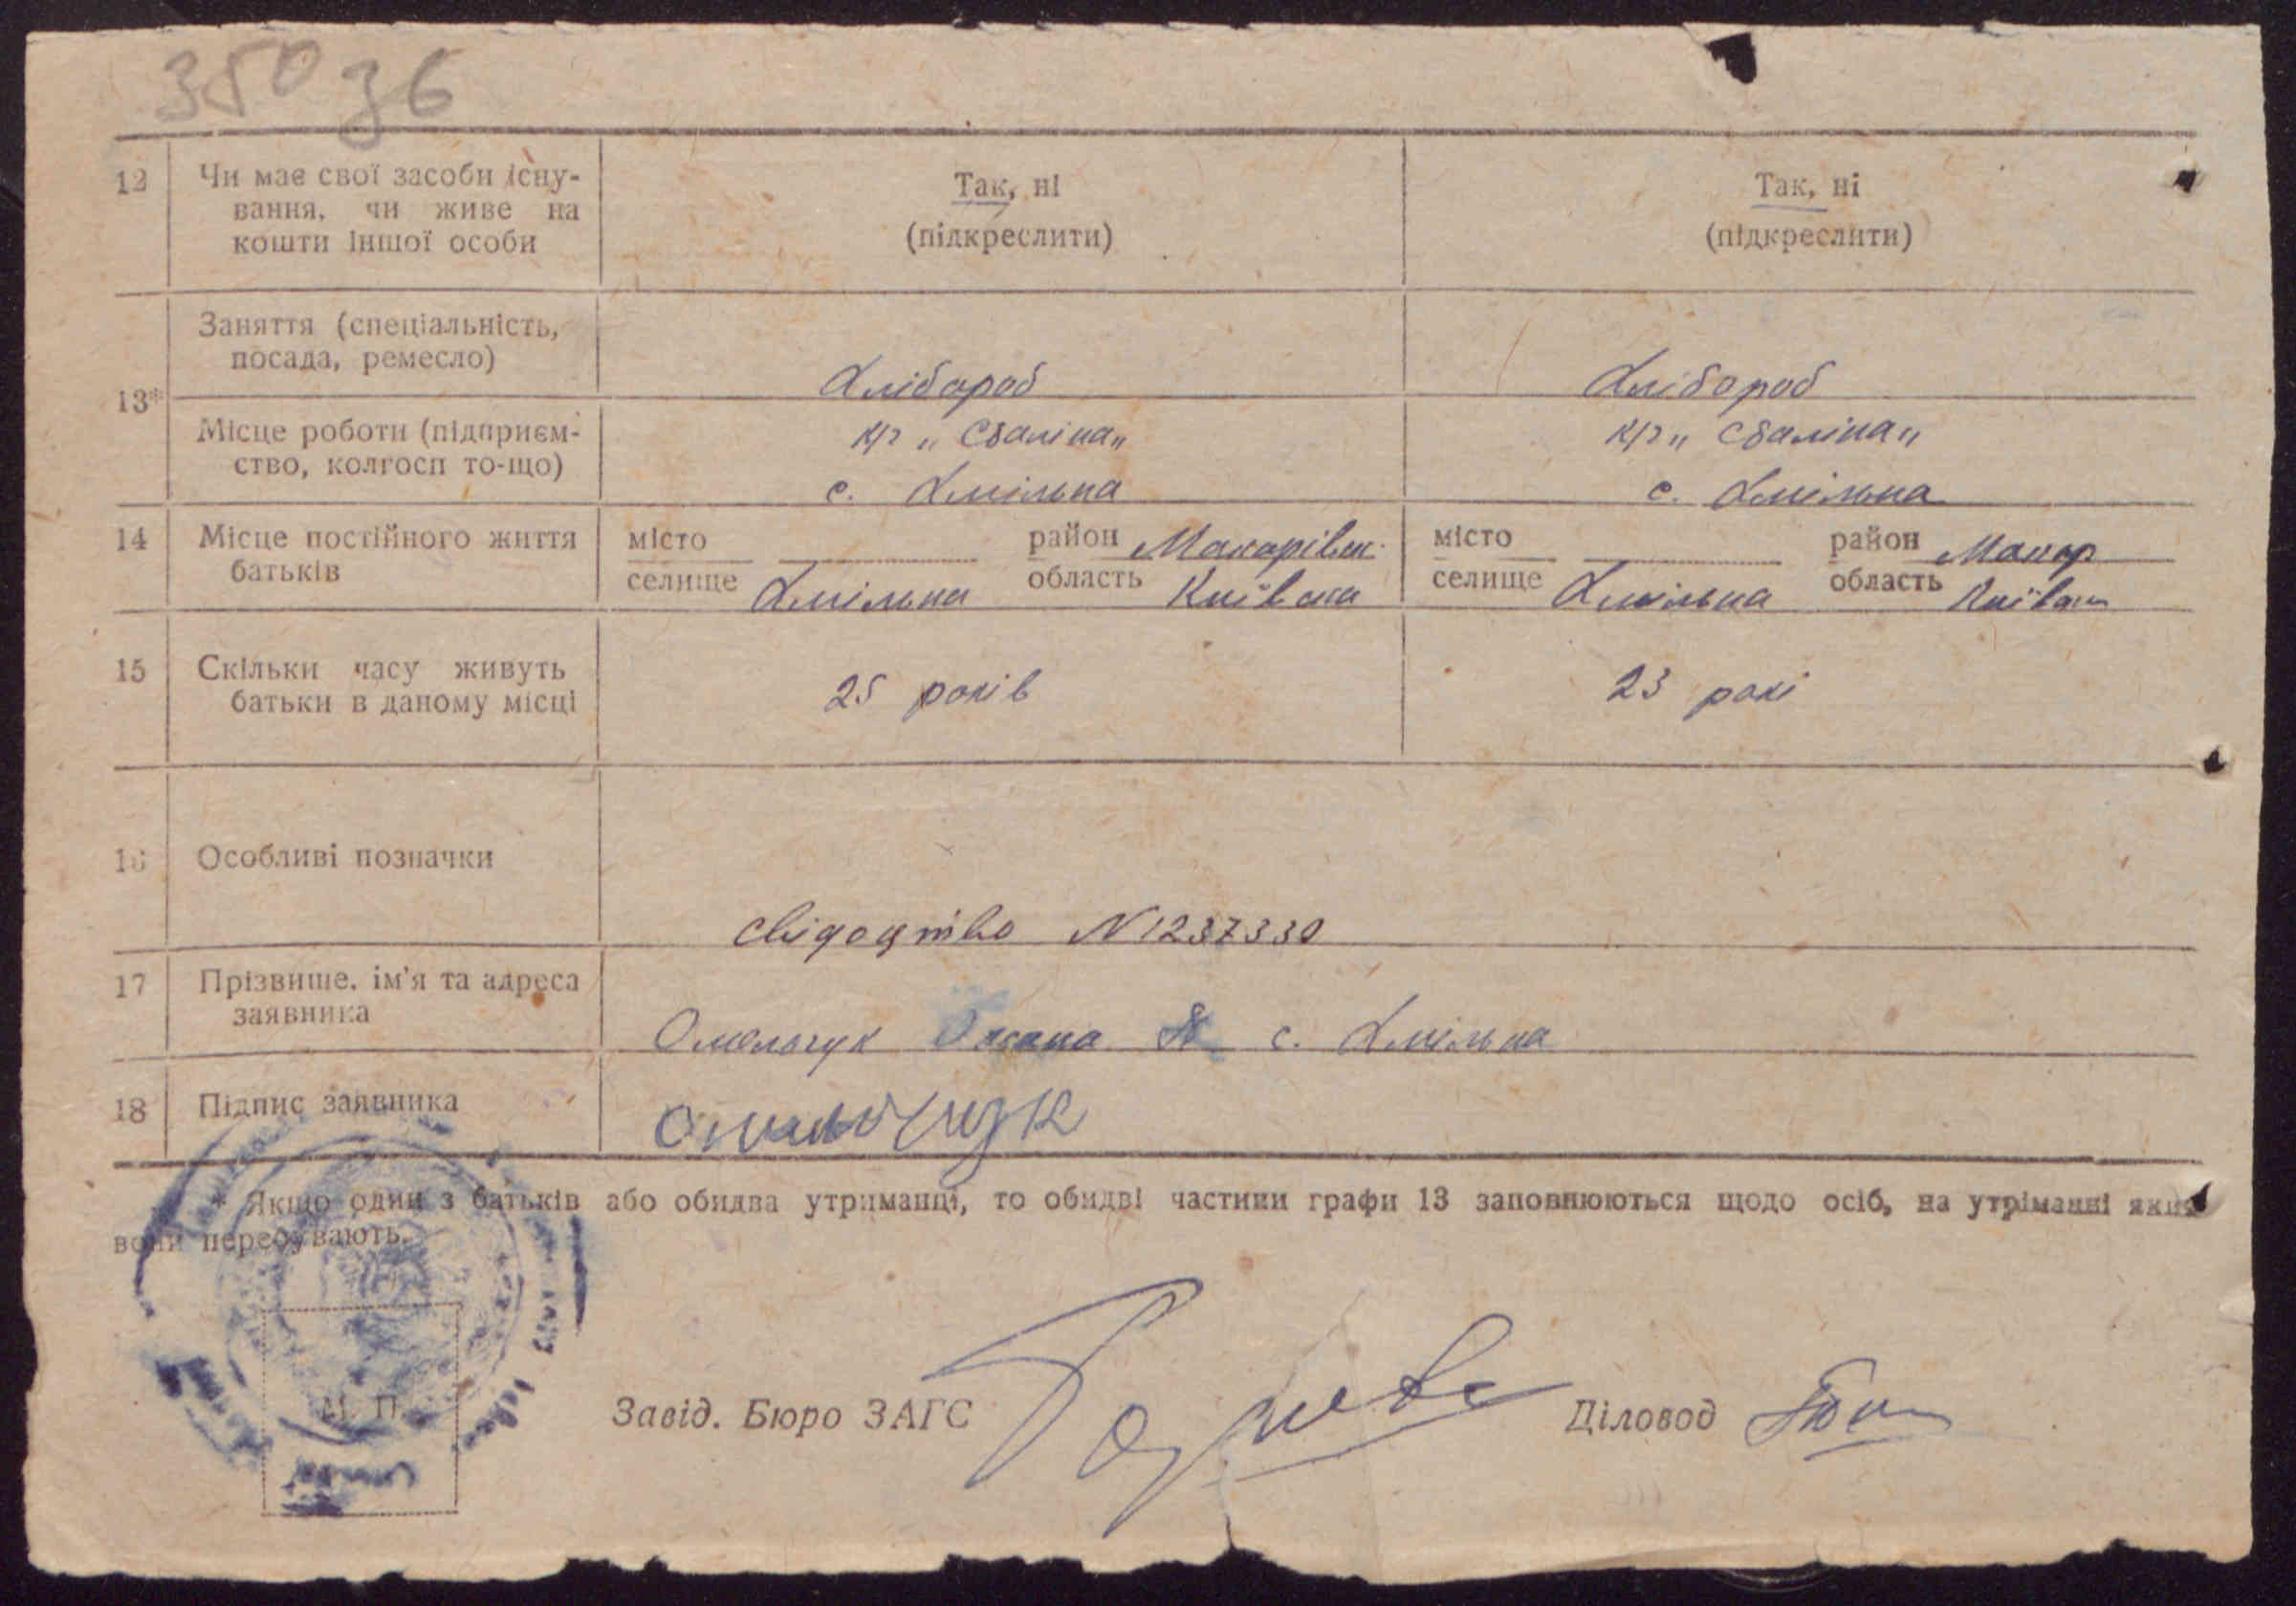 350 зб
12 Чи має свої засоби існу-
вання, чи живе на
кошти іншої особи
Так, ні
(підкреслити)
Так, ні
(підкреслити)
13* Заняття (спеціальність,
посада, ремесло)
Хлібороб
Хлібороб
Місце роботи (підприєм-
ство, колгосп то-що)
к/г „Сталіна„
с. Хмільна
к/г „Сталіна„
с. Хмільна
14 Місце постійного життя
батьків
місто район Макарівськ.
селище Хмільна область Київська
місто район Макар
селище Хмільна область Київськ
15 Скільки часу живуть
батьки в даному місці
25 років
23 рокі
16 Особливі позначки
свідоцтво N 1237330
17 Прізвище, ім'я та адреса
заявника
Омельчук Оксана с. Хмільна
18 Підпис заявника
Омельчук
* Якщо один з батьків або обидва утриманці, то обидві частини графи 13 заповнюються щодо осіб, на утріманні яких
вони перебувають.
М. П.
Завід. Бюро ЗАГС
Діловод